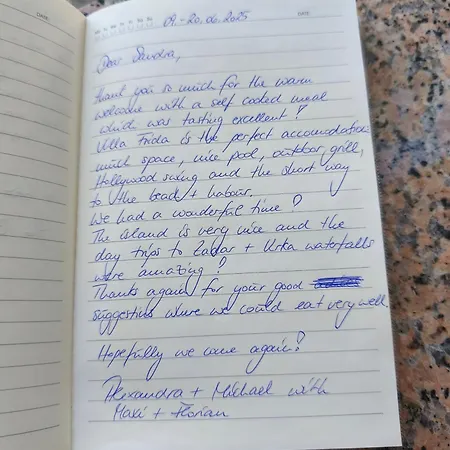 DATE
09.-20.06.2025
DATE
Dear Sandra,
thank you so much for the warm
welcome with a self cooked meal
which was tasting excellent!
Villa Frida is the perfect accomodation:
much space, nice pool, outdoor grill,
Hollywood swing and the short way
to the beach + habour.
We had a wonderful time!
The island is very nice and the
day trips to Zadar + Krka waterfalls
were amazing!
Thanks again for your good
suggestions where we could eat very well.
Hopefully we come again!
Alexandra + Michael with
Maxi + Florian